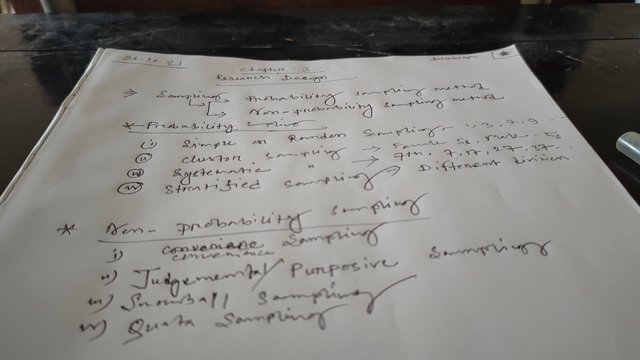 Chapter - 2
Research Design
→ Sampling → Probability sampling method
→ Non-probability sampling method
* Probability sampling
(i) Simple or Random Sampling - 1, 3, 7, 9...
(ii) cluster sampling → Female 53, Male
(iii) Systematic " → 7th, 7, 17, 27, 37...
(iv) Stratified sampling → Different Division
* Non-probability sampling
i) convenience sampling
convenience
ii) Judgemental/Purposive Sampling
iii) Snowball sampling
iv) Quata Sampling